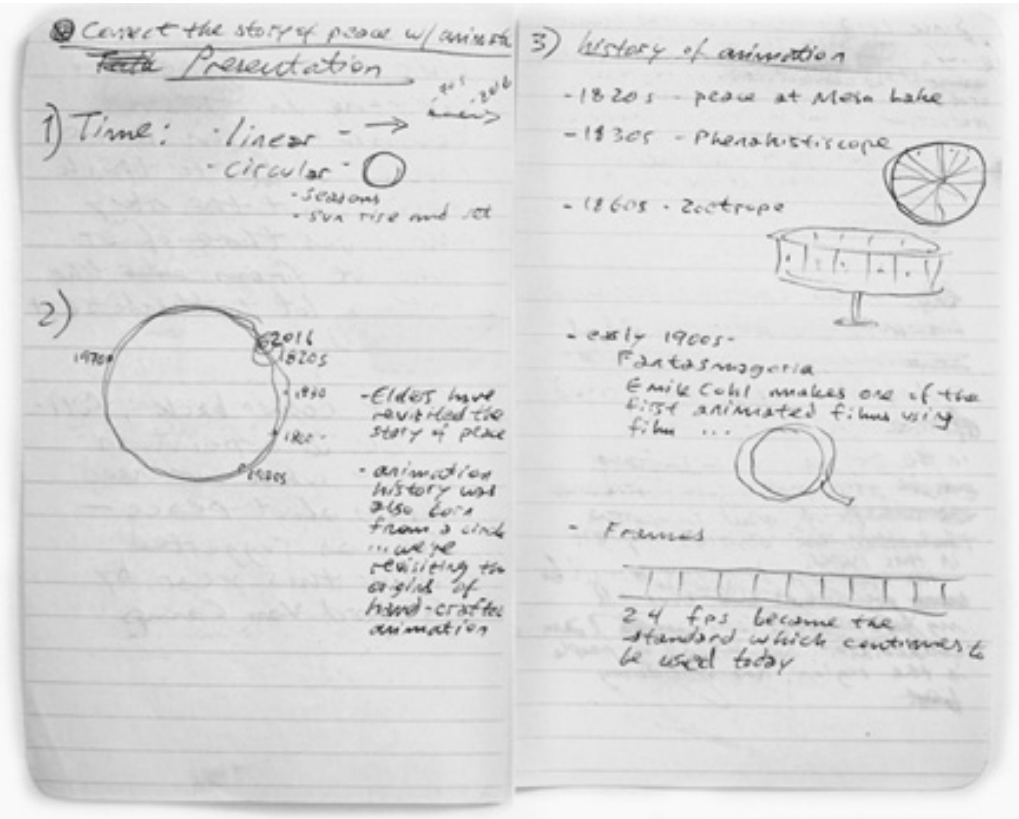 Connect the story of peace w/ animate
Presentation
1) Time: - linear - →
- circular -
- seasons
- sun rise and set
2)
2016
1820s
1970
1830
1860
1900s
- Elders have
revisited the
story of peace
- animation
history was
also born
from a circle
... we're
revisiting the
origins of
hand-crafted
animation
3) history of animation
- 1820s - peace at Mesa Lake
- 1830s - Phenakistiscope
- 1860s - Zoetrope
- early 1900s -
Fantasmagoria
Emile Cohl makes one of the
first animated films using
film ...
- Frames
24 fps became the
standard which continues to
be used today